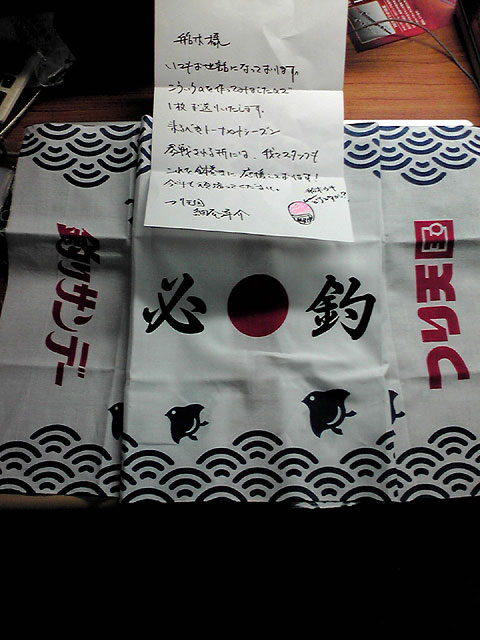 船木様
いつもお世話になっております。
こういうのを作ってみましたので
1枚お送りいたします。
来るべきトーナメントシーズン
参戦される折には、我々スタッフも
これを鉢巻きに応援しております!
今年も頑張ってください。
つり天国
釣りサンデー
必 釣
つり天国